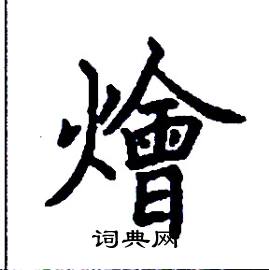 燴
词典网